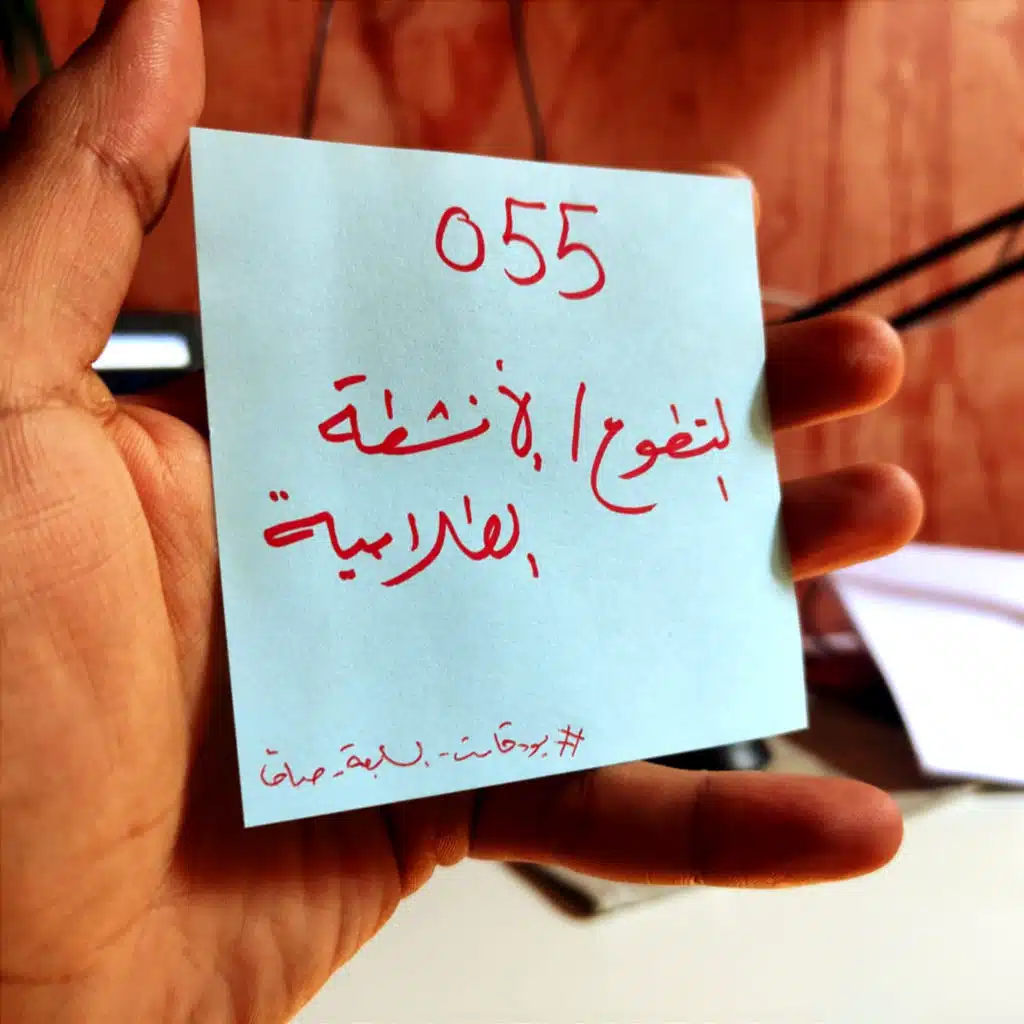 055
التطوع / الأنشطة
الطلابية
#بودكاست_السابعة_صباحا